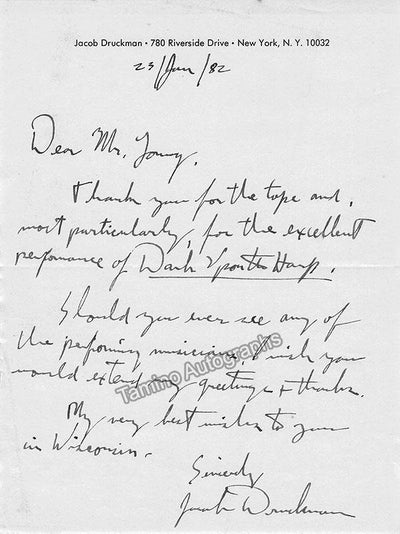 Jacob Druckman • 780 Riverside Drive • New York, N. Y. 10032
23/Jan/82
Dear Mr. Young,
Thank you for the tape and,
most particularly, for the excellent
performance of Dark Upon the Harp.
Should you ever see any of
the performing musicians, I wish you
would extend my greetings + thanks.
My very best wishes to you
in Wisconsin.
Sincerely
Jacob Druckman
Tamino Autographs